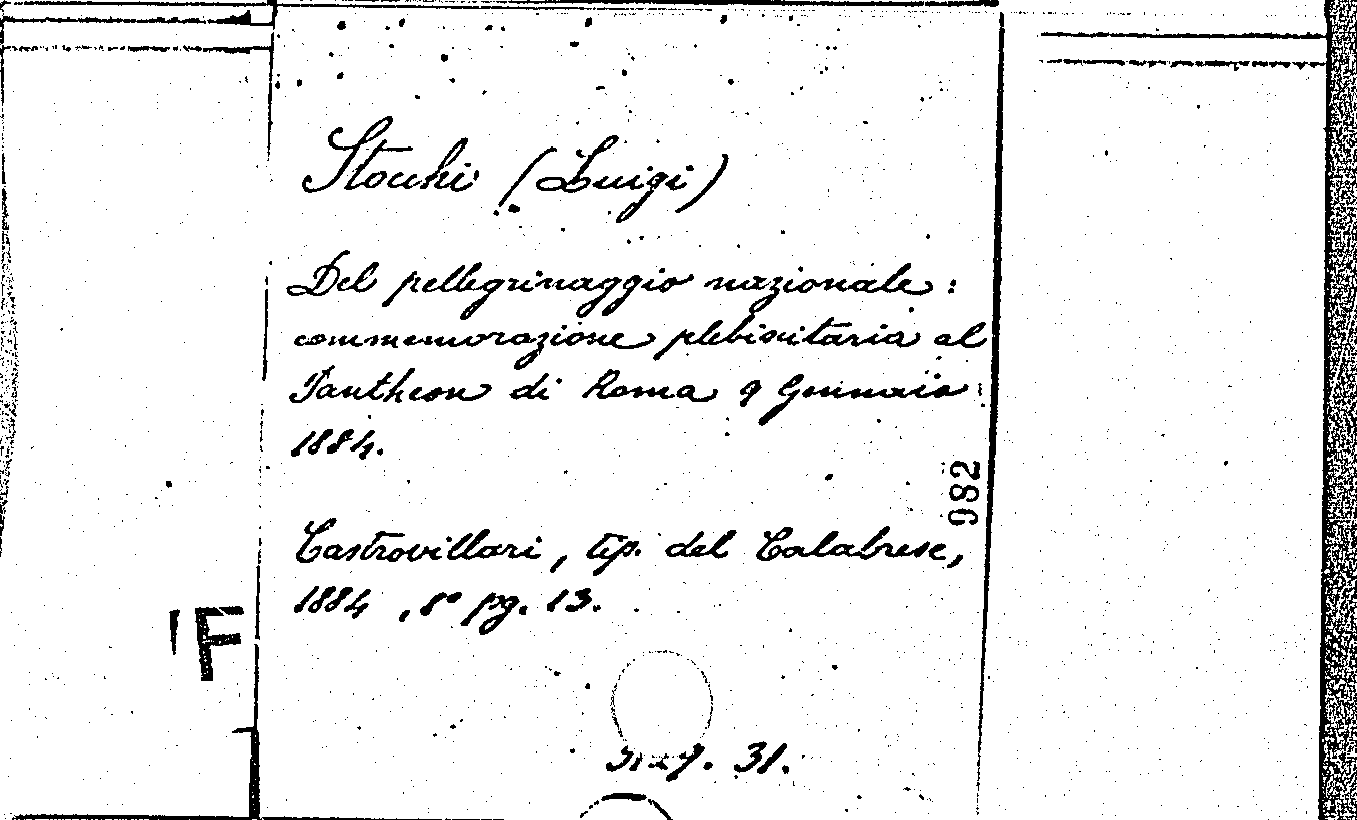 Stocchi (Luigi)
Del pellegrinaggio nazionale :
commemorazione plebiscitaria al
Pantheon di Roma 9 Gennaio
1884.
982
Castrovillari, tip. del Calabrese,
1884, 8º pg. 13.
F
31.